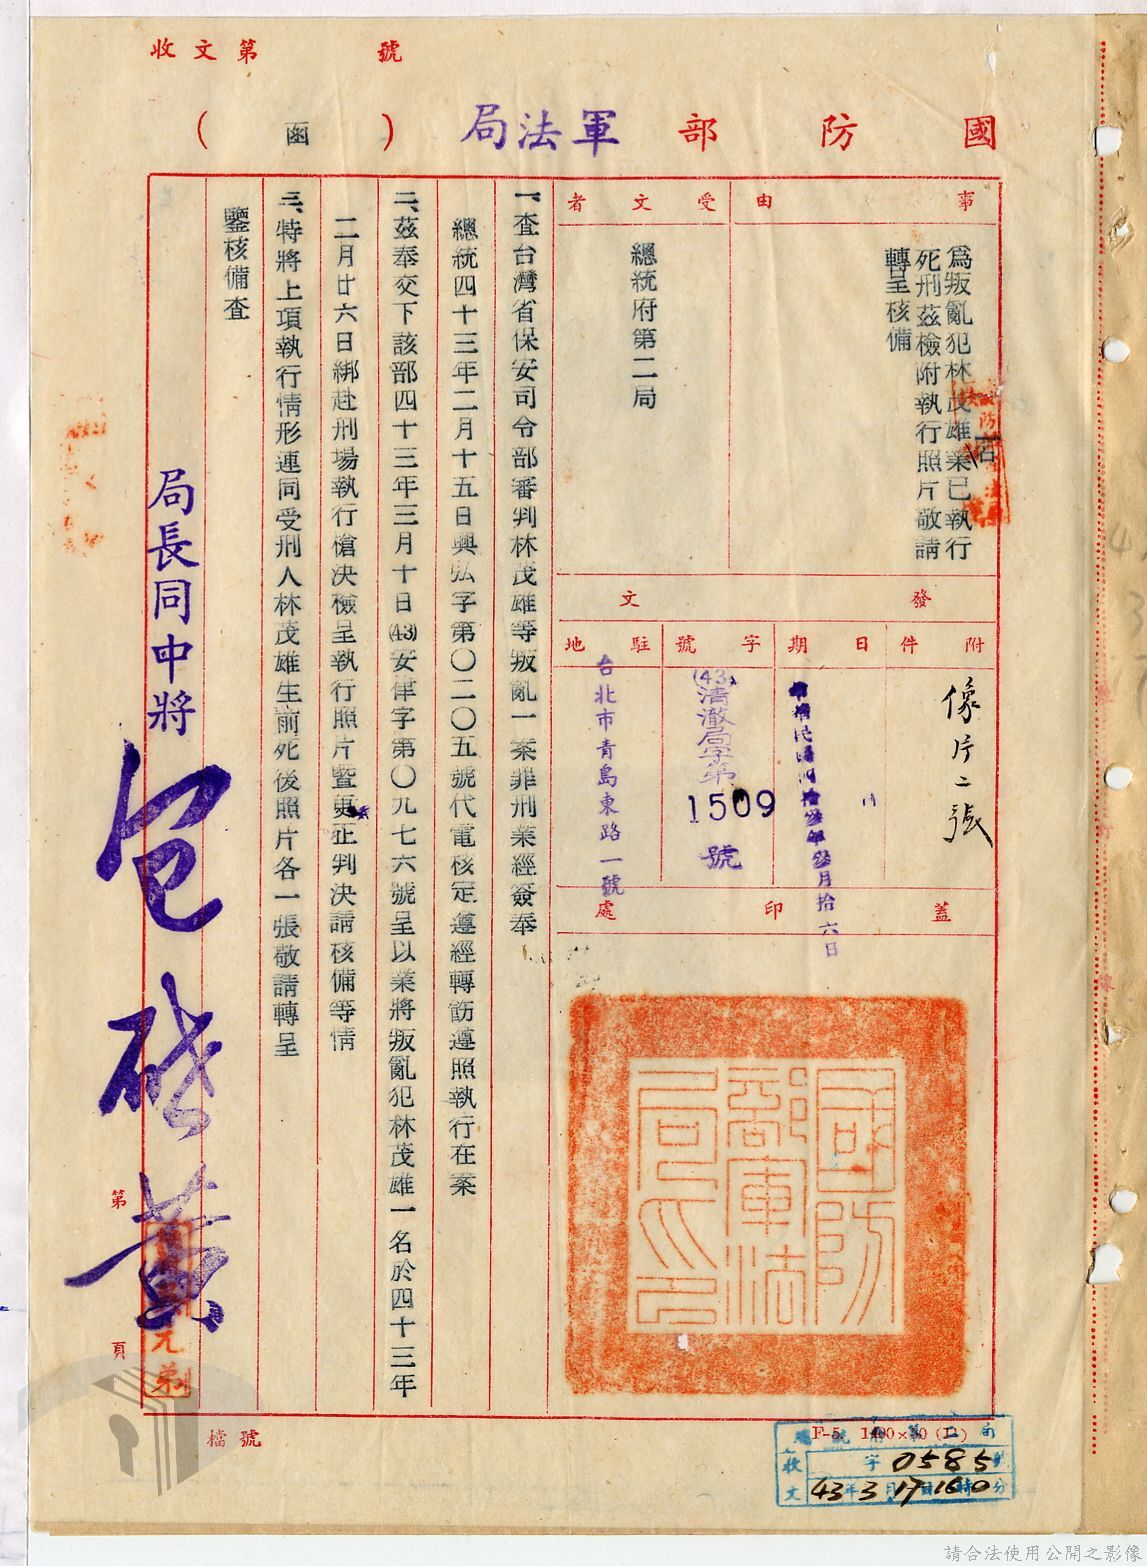 收文第　　號
國防部軍法局（函）
事由
為叛亂犯林茂雄業已執行
死刑茲檢附執行照片敬請
轉呈核備
名
受文者
總統府第二局
發文
附件
像片二張
日期
中華民國四拾叁年叁月拾六日
字號
(43)清澈局字第
1509
號
駐地
台北市青島東路一號
蓋印處
國防部軍法局印
一、查台灣省保安司令部審判林茂雄等叛亂一案罪刑業經簽奉
總統四十三年二月十五日興弘字第〇二〇五號代電核定遵經轉飭遵照執行在案
二、茲奉交下該部四十三年三月十日(43)安律字第〇九七六號呈以業將叛亂犯林茂雄一名於四十三年
二月廿六日綁赴刑場執行槍決檢呈執行照片暨更正判決請核備等情
三、特將上項執行情形連同受刑人林茂雄生前死後照片各一張敬請轉呈
鑒核備查
局長同中將
包啟黃
第　頁
檔號
F-5. 1400×50 (11)
收文
字 0585 號
43年3月17日1610時分
請合法使用公開之影像